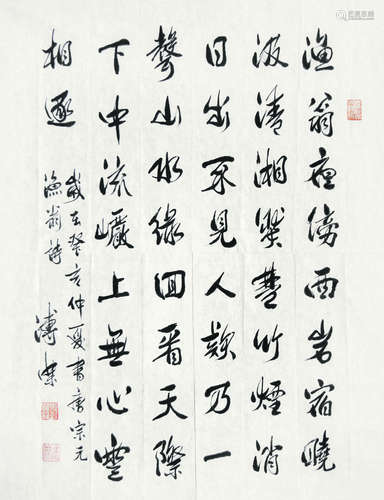 漁翁夜傍西岩宿曉
汲清湘燃楚竹煙消
日出不見人欸乃一
聲山水綠回看天際
下中流巖上無心雲
相逐
歲在癸亥仲夏書唐宗元
漁翁詩 溥傑